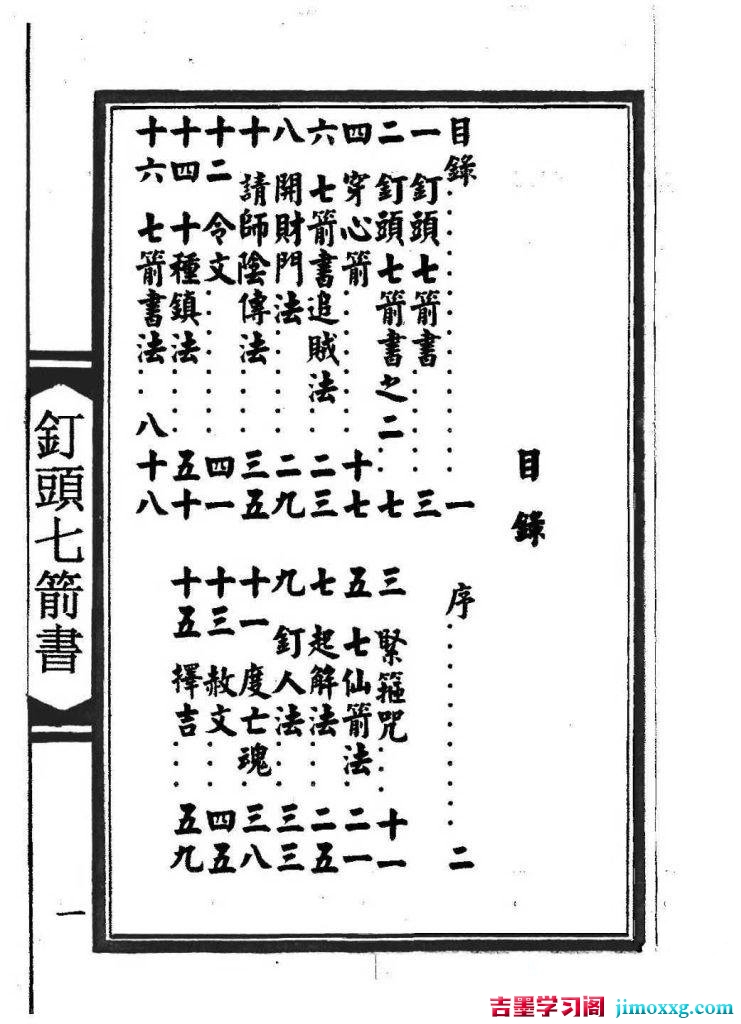 目錄
目錄……一 序……二
一 釘頭七箭書……三
二 釘頭七箭書之二……七 三 緊箍咒……十一
四 穿心箭……十七 五 七仙箭法……二一
六 七箭書追賊法……二三 七 起解法……二五
八 開財門法……二九 九 釘人法……三三
十 請師陰傳法……三五 十一 度亡魂……三八
十二 令文……四一 十三 赦文……四五
十四 十種鎮法……五十 十五 擇吉……五九
十六 七箭書法……八十八
釘頭七箭書
一
吉墨学习阁 jimoxxg.com